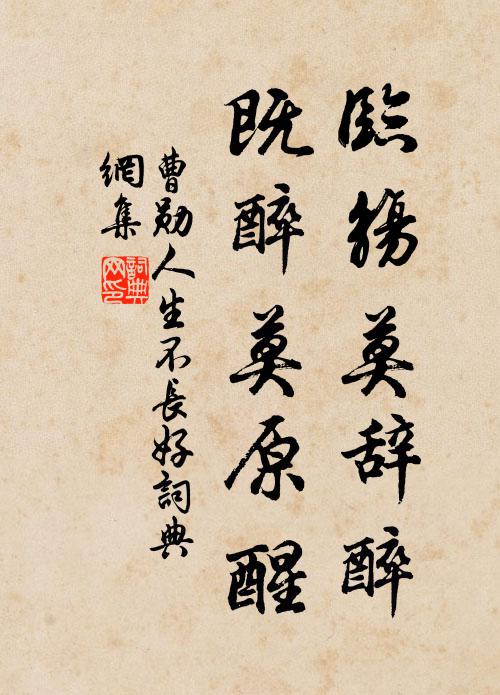 臨觴莫辞醉
既醉莫原醒
曹勛人生不長好詞典
網集
詞典
网印